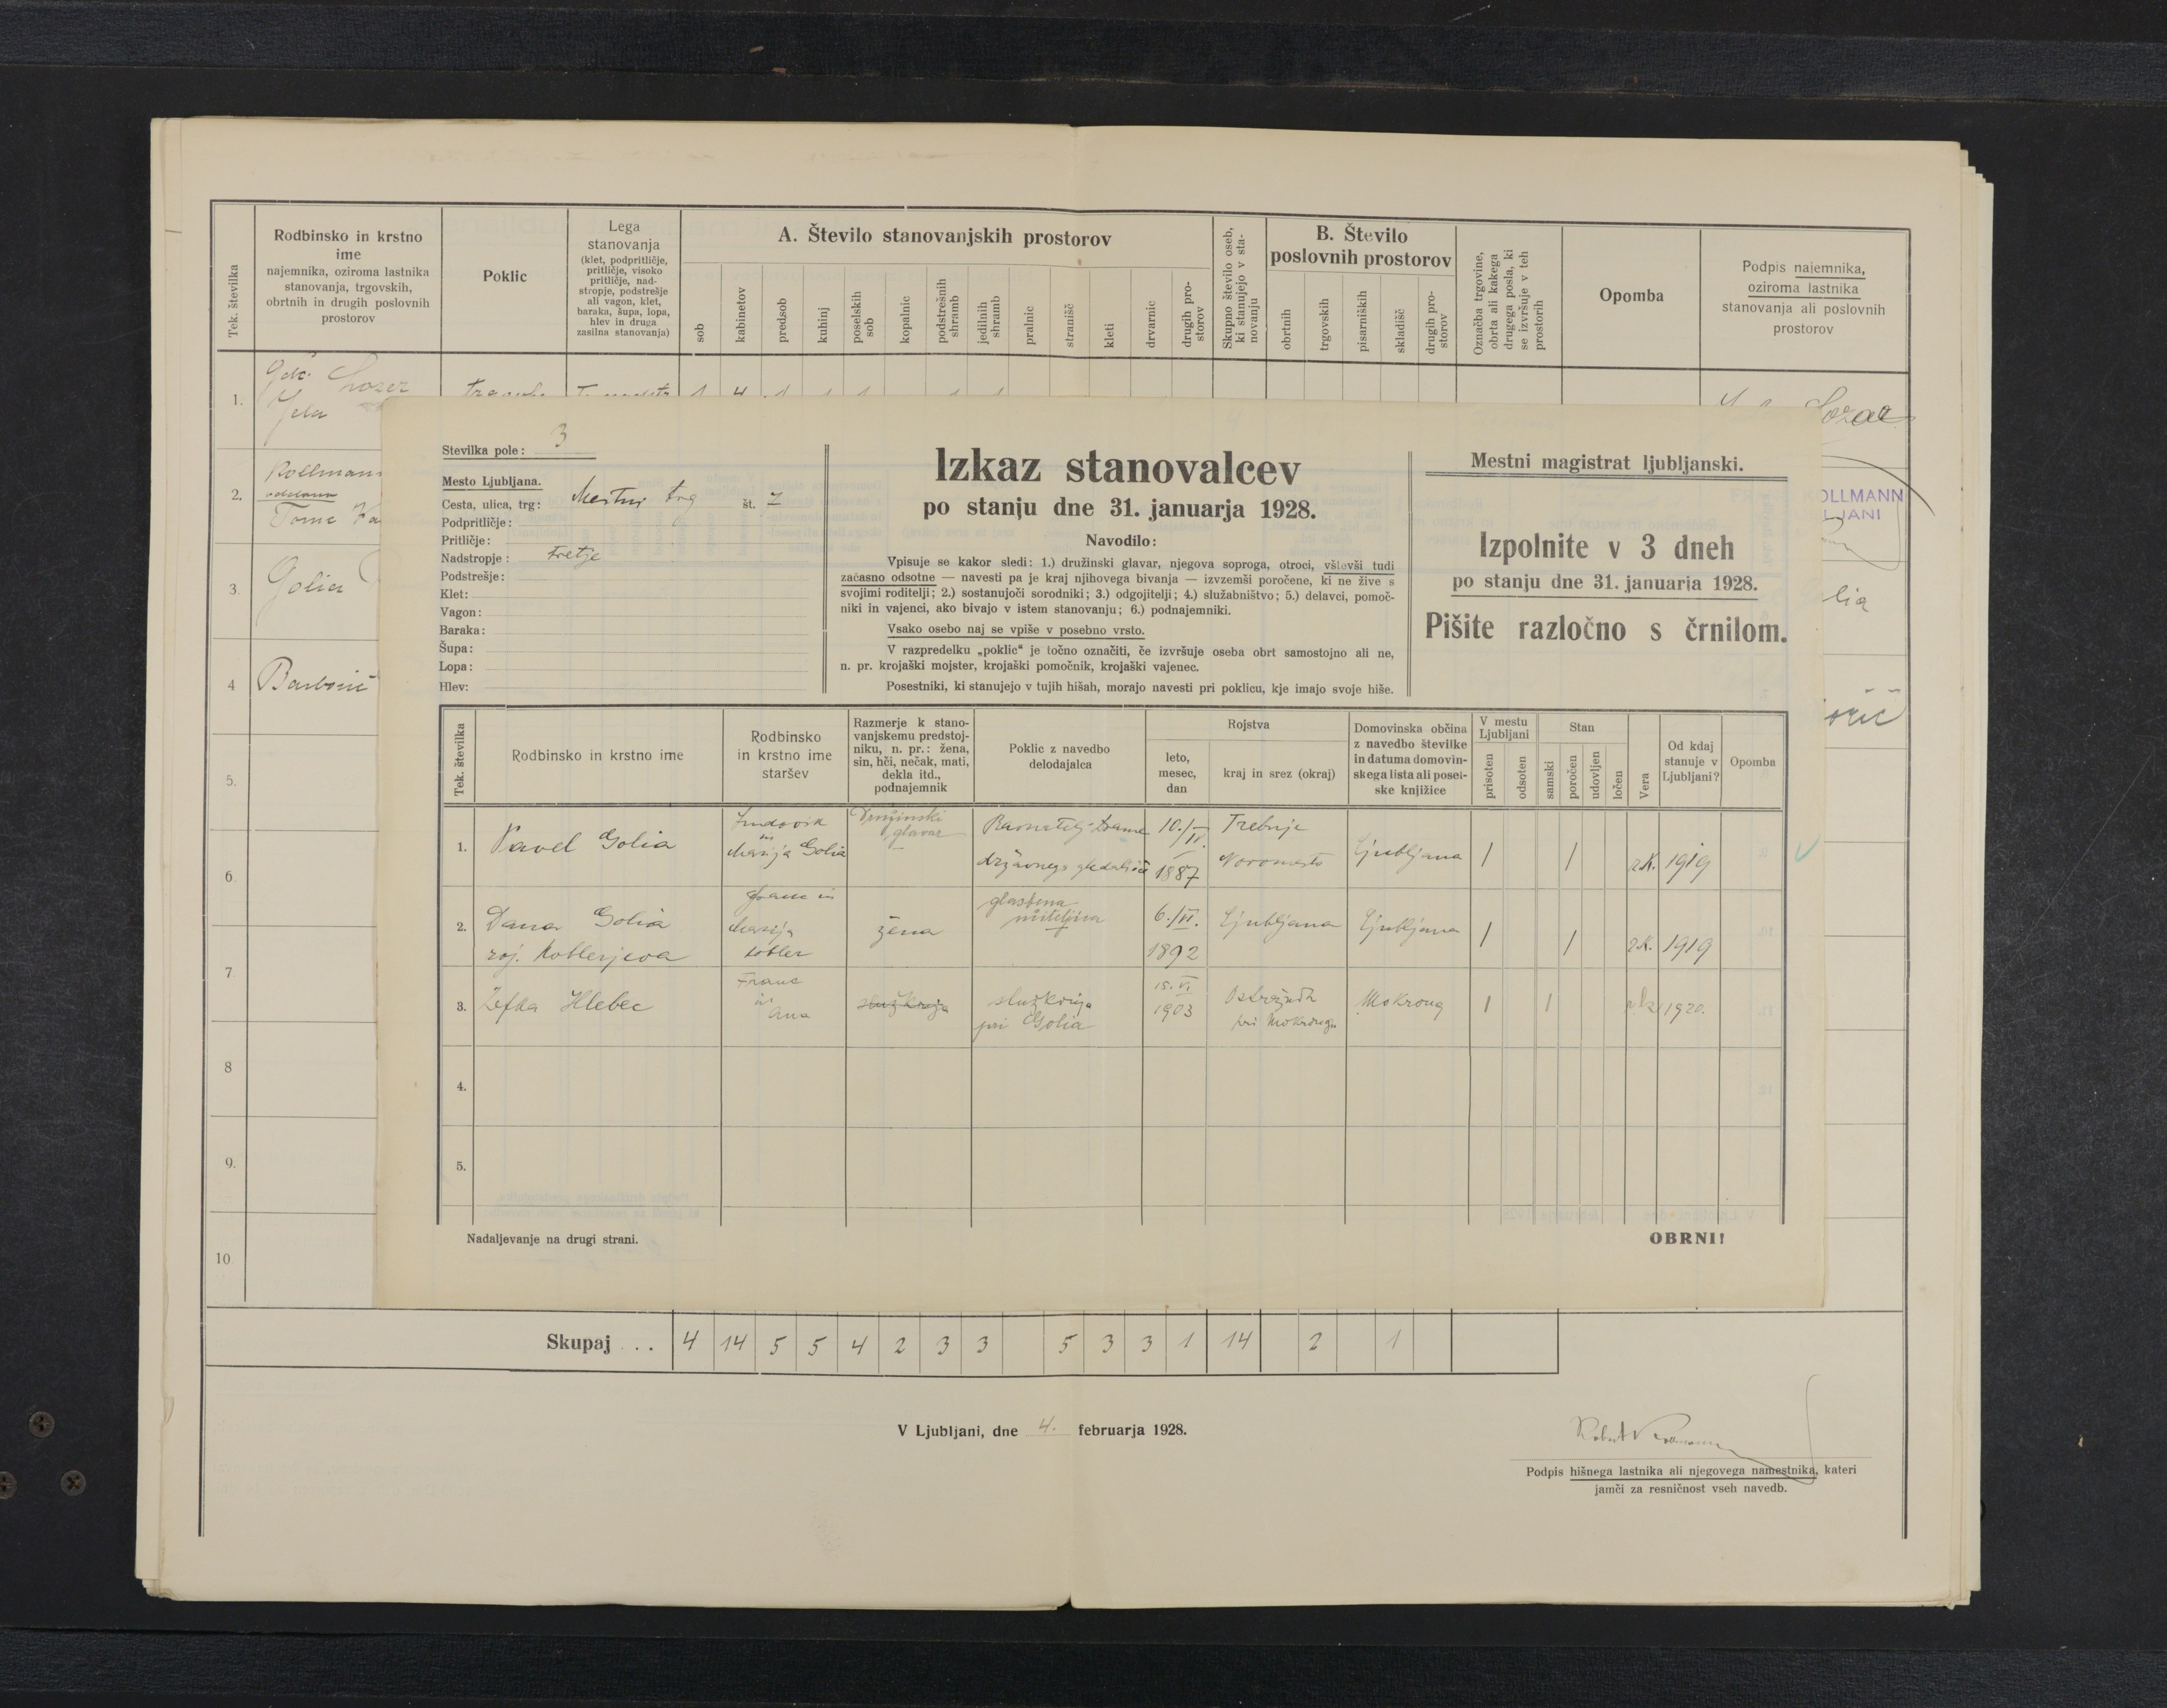 Tek. številka
Rodbinsko in krstno
ime
najemnika, oziroma lastnika
stanovanja, trgovskih,
obrtnih in drugih poslovnih
prostorov
Poklic
Lega
stanovanja
(klet, podpritličje,
pritličje, visoko
pritličje, nad-
stropje, podstrešje
ali vagon, klet,
baraka, šupa, lopa,
hlev in druga
zasilna stanovanja)
A. Število stanovanjskih prostorov
sob
kabinetov
predsob
kuhinj
poselskih
sob
kopalnic
podstrešnih
shramb
jedilnih
shramb
pralnic
stranišč
kleti
drvarnic
drugih pro-
storov
Skupno število oseb,
ki stanujejo v sta-
novanju
B. Število
poslovnih prostorov
obrtnih
trgovskih
pisarniških
skladišč
drugih pro-
storov
Označba trgovine,
obrta ali kakega
drugega posla, ki
se izvršuje v teh
prostorih
Opomba
Podpis najemnika,
oziroma lastnika
stanovanja ali poslovnih
prostorov
1.
Jela
2.
Kollmann
OLLMANN
LJANI
3.
Golia
lia
4
5.
6.
7.
8
9.
10
Številka pole: 3
Mesto Ljubljana.
Cesta, ulica, trg: Mestni trg št. 7
Podpritličje:
Pritličje:
Nadstropje: tretje
Podstrešje:
Klet:
Vagon:
Baraka:
Šupa:
Lopa:
Hlev:
Izkaz stanovalcev
po stanju dne 31. januarja 1928.
Navodilo:
Vpisuje se kakor sledi: 1.) družinski glavar, njegova soproga, otroci, vštevši tudi
začasno odsotne — navesti pa je kraj njihovega bivanja — izvzemši poročene, ki ne žive s
svojimi roditelji; 2.) sostanujoči sorodniki; 3.) odgojitelji; 4.) služabništvo; 5.) delavci, pomoč-
niki in vajenci, ako bivajo v istem stanovanju; 6.) podnajemniki.
Vsako osebo naj se vpiše v posebno vrsto.
V razpredelku „poklic“ je točno označiti, če izvršuje oseba obrt samostojno ali ne,
n. pr. krojaški mojster, krojaški pomočnik, krojaški vajenec.
Posestniki, ki stanujejo v tujih hišah, morajo navesti pri poklicu, kje imajo svoje hiše.
Mestni magistrat ljubljanski.
Izpolnite v 3 dneh
po stanju dne 31. januaria 1928.
Pišite razločno s črnilom.
Tek. številka
Rodbinsko in krstno ime
Rodbinsko
in krstno ime
staršev
Razmerje k stano-
vanjskemu predstoj-
niku, n. pr.: žena,
sin, hči, nečak, mati,
dekla itd.,
podnajemnik
Poklic z navedbo
delodajalca
Rojstva
leto,
mesec,
dan
kraj in srez (okraj)
Domovinska občina
z navedbo številke
in datuma domovin-
skega lista ali posel-
ske knjižice
V mestu
Ljubljani
prisoten
odsoten
Stan
samski
poročen
udovljen
ločen
Vera
Od kdaj
stanuje v
Ljubljani?
Opomba
1.
Pavel Golia
Ludovik
in
Marija Golia
Družinski
glavar
Ravnatelj drame
državnega gledališča
10./IV.
1887
Trebnje
Novomesto
Ljubljana
1
1
r.k.
1919
2.
Dana Golia
roj. Koblerjeva
Franc in
Marija
Kobler
žena
glasbena
učiteljica
6./VI.
1892
Ljubljana
Ljubljana
1
1
r.k.
1919
3.
Zefka Hlebec
Franc
in
Ana
služkinja
služkinja
pri Golia
15. VI.
1903
pri Mokronogu
Mokronog
1
1
1920.
4.
5.
Nadaljevanje na drugi strani.
OBRNI!
Skupaj . . . 4 14 5 5 4 2 3 3 5 3 3 1 14 2 1
V Ljubljani, dne 4. februarja 1928.
Podpis hišnega lastnika ali njegovega namestnika, kateri
jamči za resničnost vseh navedb.